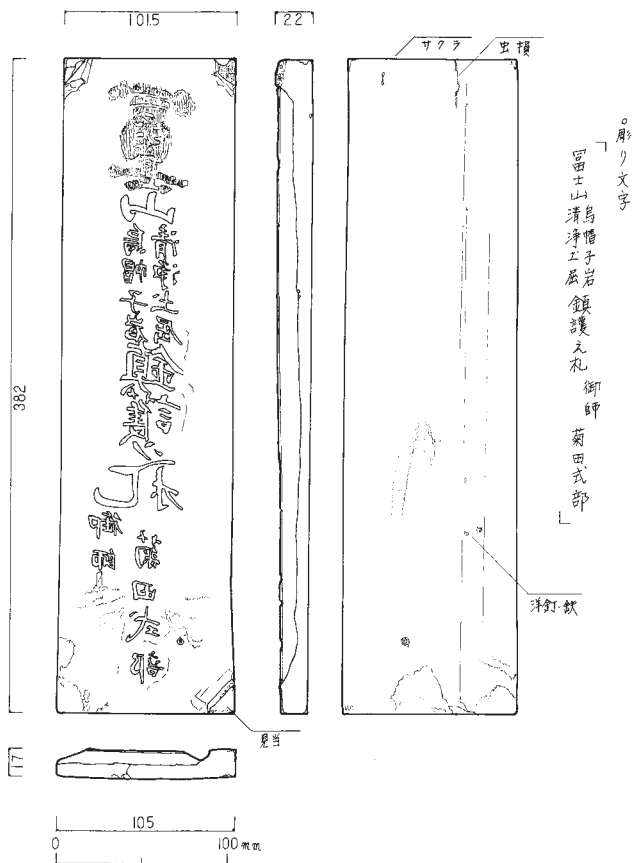 101.5
22
サクラ
虫損
382
洋釘・鉄
見当
17
105
0 100 mm
○彫り文字
「冨士山烏帽子岩
清浄土窟鎮護之札 御師 菊田式部」